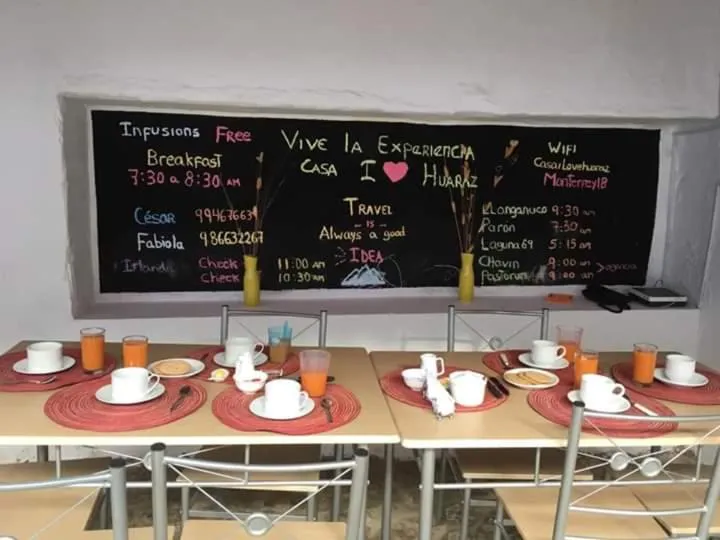 Infusions Free
Breakfast
7:30 a 8:30 AM
César 994676639
Fabiola 986632267
Irlanda Check 11:00 am
Check 10:30 am
Vive la Experiencia
Casa I ❤ Huaraz
Travel
IS
Always a good
IDEA
WIFI
Casailovehuaraz
Monterrey18
Llanganuco 9:30 am
Paron 7:30 am
Laguna 69 5:15 am
Chavin 9:00 am
Pastoruri 9:00 am > agencia